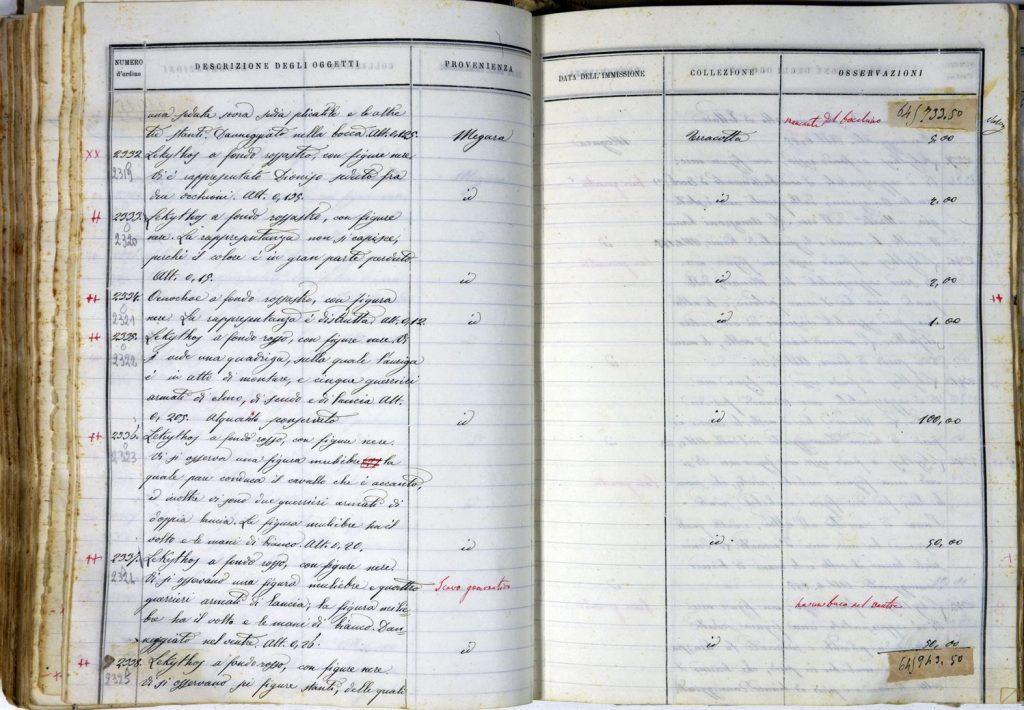 NUMERO d'ordine
DESCRIZIONE DEGLI OGGETTI
PROVENIENZA
DATA DELL'IMMISSIONE
COLLEZIONE
OSSERVAZIONI
64,933.50
una seduta sovra sedia plicatile e le altre
tre stanti. Danneggiato nella bocca. Alt. 0,125. Megara Terracotta 5,00
XX 2332. Lekythos a fondo rossastro, con figure nere.
2319 Vi è rappresentato Dionijo seduto fra
due occhioni. Alt. 0,135. id id 2,00
2333. Lekythos a fondo rossastro, con figure
2320 nere. La rappresentanza non si capisce,
perchè il colore è in gran parte perduto.
Alt. 0,15. id id 2,00
2334. Oenochoe a fondo rossastro, con figura
2321 nere. La rappresentanza è distrutta. Alt. 0,12. id id 1.00
2335. Lekythos a fondo rosso, con figure nere. Vi
2322 si vede una quadriga, sulla quale l'auriga
è in atto di montare, e cinque guerrieri
armati di elmo, di scudo e di lancia. Alt.
0,205. id id 100,00
2336. Lekythos a fondo rosso, con figure nere.
2323 Vi si osserva una figura muliebre la
quale pare conduca il cavallo che è accanto,
ed inoltre vi sono due guerrieri armati di
doppia lancia. La figura muliebre ha il
volto e le mani di bianco. Alt. 0,20. id id 50,00
2337. Lekythos a fondo rosso, con figure nere
2324 Vi si osservano una figura muliebre e quattro
guerrieri armati di lancia; la figura mulie-
bre ha il volto e le mani di bianco. Dan-
neggiato nel ventre. Alt. 0,26. id ha un buco nel ventre id 50,00
2338. Lekythos a fondo rosso, con figure nere
2325 Vi si osservano sei figure stanti, delle quali
64,943.50